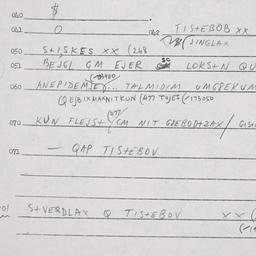 040 $
042 0 042 TISTEBOB XX
JINGLAX
050 STISKES XX (248
051 BEJGL GM EJER SC LOKSTN QU
060 ANEPIDEMJE, TALMIDIM UMGREKUM
(QEJBIKMAKNITKUN (477 TOJES (-173050
070 KUN FLEJST / GM NIT GJEBODTZAX /
072 — QAP TISTEBOV
STVERDLAX Q TISTEBOV XX